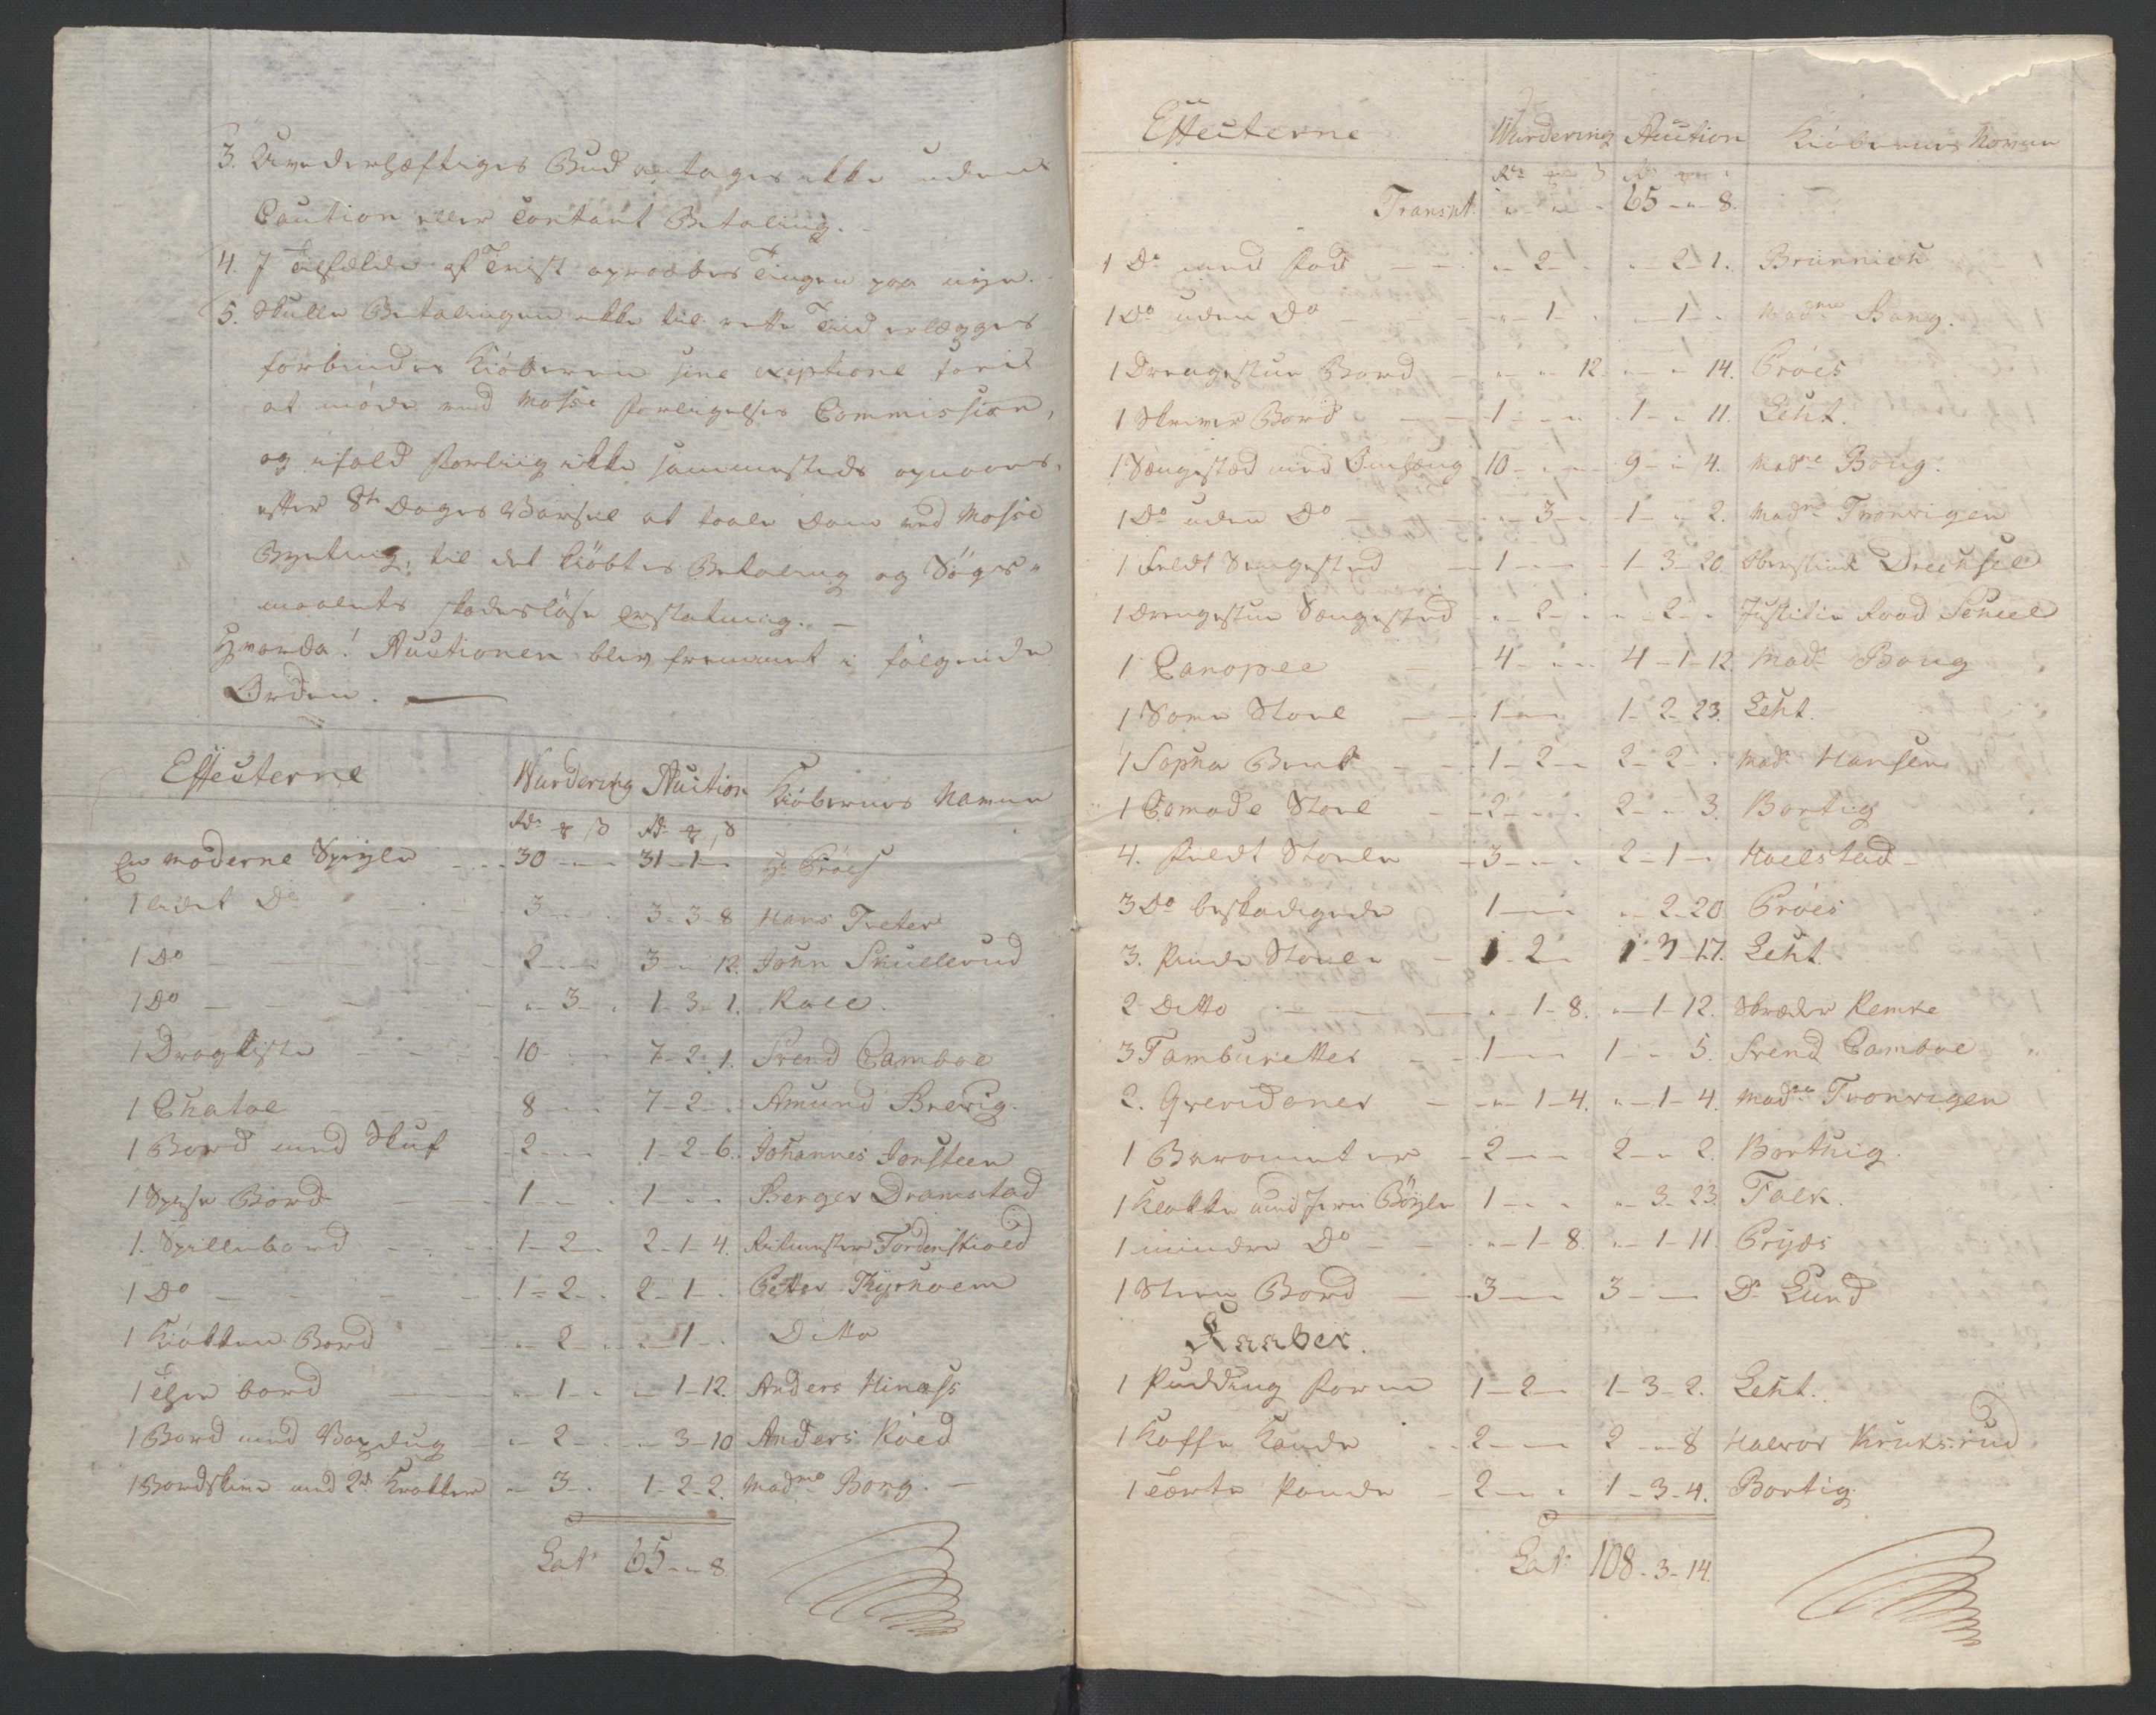 3. Uvederhæftiges Bud antages ikke uden
Caution eller contant Betaling.
4. J Tilfælde af Tvist opraabes Tingen paa nye.
5. Skulle Betalingen ikke til rette Tiid erlægges
forbindes Kiøberen sine exeptione forie
at møde ved Mosse Forligelses Commission,
og ifald Forliig ikke sammesteds opnaaes,
efter 8te Dages Varsel at taale Dom ved Mosse
Byeting, til det kiøbtes Betaling og Søgs-
maalets skadesløse Erstatning. —
Hvorda! Auctionen blev fremmet i følgende
Orden. —
Effecterne Wurdering Auction Kiøbernes Navne
Rdr. ₰ Rd. ₰
En moderne Speyle 30 - - 31 - 1 - Hr Pröes
1 lidet Do 3 - - 3 - 3 - 8 Hans Treter
1 Do 2 - - 3 - " - 12. John Skullerud
1 Do " - 3 - 1 - 3 - 1. Kall.
1 Dragkiste 10 - - 7 - 2 - 1. Svend Camboe
1 Chatol 8 - - 7 - 2 - Amund Brevig.
1 Bord med Skuf 2 - - 1 - 2 - 6. Johannes Jonsteen
1 Spise Bord 1 - - 1 - - Berger Dramstad
1. Spillebord 1 - 2 - 2 - 1 - 4. Ritmester Tordenskiold
1 Do 1 - 2 - 2 - 1 - Petter Thyrholm
1 Kiøkken Bord " - 2 - " - 1 - Ditto
1 Thee bord " - 1 - " - 1 - 12. Anders Hinass
1 Bord med Voxdug " - 2 - " - 3 - 10 Anders Röed
1 Bordskive med 2de Krakker " - 3 - 1 - 2 - 2. Madme Bang. —
Lat. 65 - " - 8
Effecterne Wurdering Auction Kiøbernes Navne
Rdr. ₰ Rd.
Transpt. " " " 65 - " - 8.
1 Do med Fod " - 2 - " - 2 - 1. Brünnich
1 Do uden Do " - 1 - " - 1 - Madme Bang.
1 Drengestue Bord " - " - 12. " - " - 14. Pröes
1 Skriver Bord 1 - - 1 - " - 11. Leht.
1 Sængestæd med Omhæng 10 - - 9 - " - 4. Madme Bang.
1 Do uden Do " - 3 - 1 - " - 2. Madme Tronvigen
1 Feldt Sengested 1 - - 1 - 3 - 20. Oberstinde Drechsel
1 Drengestue Sængested " - 2 - " - 2 - Justitie Raad Scheel
1 Canopee 4 - - 4 - 1 - 12. Made Bang
1 Stoel 1 - - 1 - 2 - 23. Leht.
1 Sopha Benk 1 - 2 - 2 - 2 - Made Hansen
1 Comode Stoel 2 - - 2 - " - 3. Bortig
4. Feldt Stoele 3 - - 2 - 1 - Holstad
3 Do beskadigede 1 - - " - 2 - 20 Pröes
3. Pinde Stoele 1 - 2 - 1 - 3 - 17. Leht.
2 Ditto " - 1 - 8. " - 1 - 12. Skræder Remke
3 Tambueretter 1 - - 1 - " - 5. Svend Camboe
2. Greridoner " - 1 - 4. " - 1 - 4. Madme Tronvigen
1 Barometer 2 - - 2 - " - 2. Borthig.
1 Klokke med Jern Böyle 1 - - " - 3 - 23. Falk.
1 mindre Do " - 1 - 8. " - 1 - 11. Pryds
1 Steen Bord 3 - - 3 - - Dr Lund
Kaaber.
1 Pudding Form 1 - 2 - 1 - 3 - 2. Leht.
1 Kaffe Kande 2 - - 2 - " - 8 Halvor Kruksrud
1 Tærte Pande 2 - - 1 - 3 - 4. Bortig.
Lat. 108 - 3 - 14.